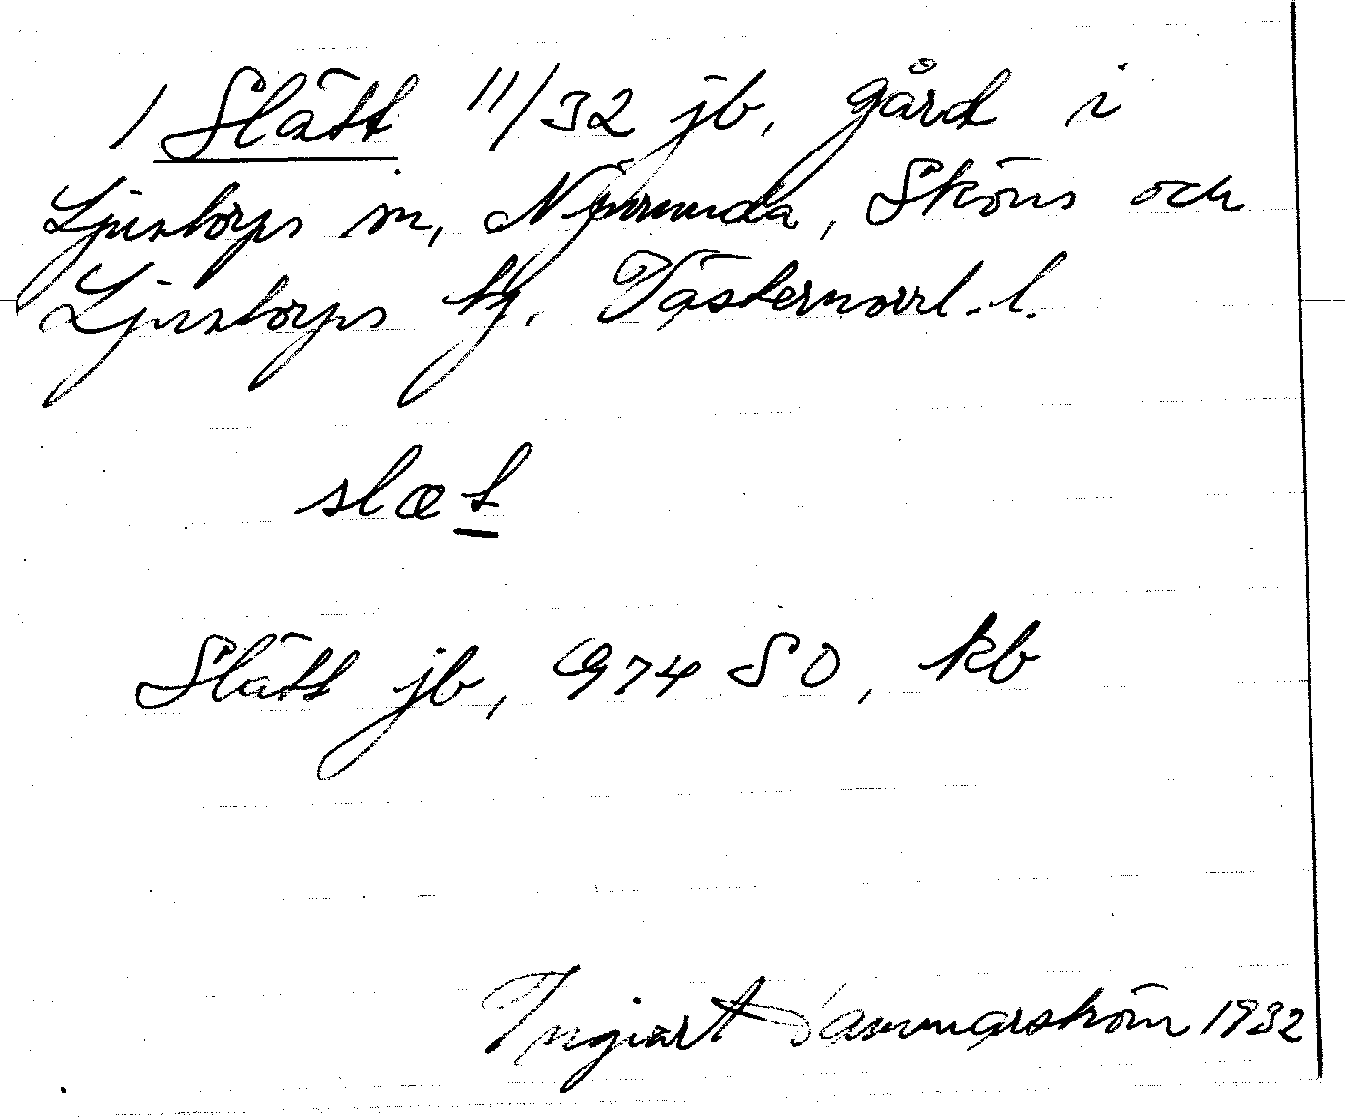 1 Slätt 11/32 jb, gård i
Ljustorps sn, Njurunda, Sköns och
Ljustorps tg. Västernorrl. l.
slæt
Slätt jb, 974 SO, kb
Ingvart Hammarström 1932